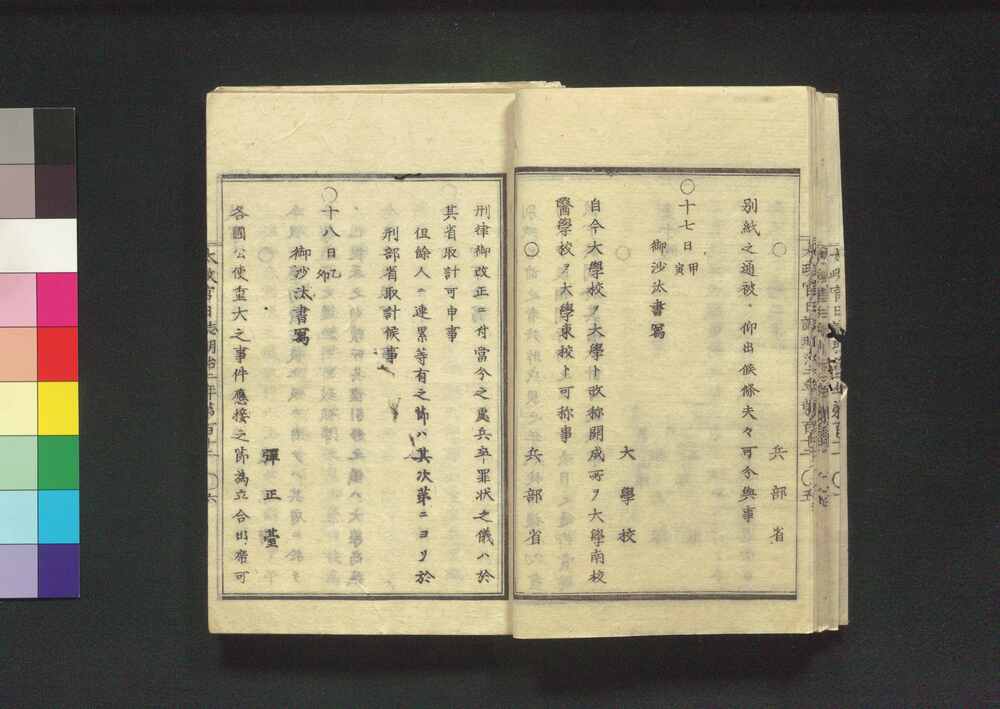 ○　兵部省
別紙之通被　仰出候條夫々可令與事
○十七日甲寅
御沙汰書寫
○　大學校
自今大學校ヲ大學ト改称開成所ヲ大學南校
醫學校ヲ大學東校ト可称事
○　兵部省
刑律御改正ニ付當今之處兵卒罪状之儀ハ於
其省取計可申事
但餘人ニ連累等有之節ハ其次第ニヨリ於
刑部省取計候事
○十八日乙卯
御沙汰書寫
彈正臺
各國公使重大之事件應接之節為立合出席可
太政官日誌明治二年第百十二　○六